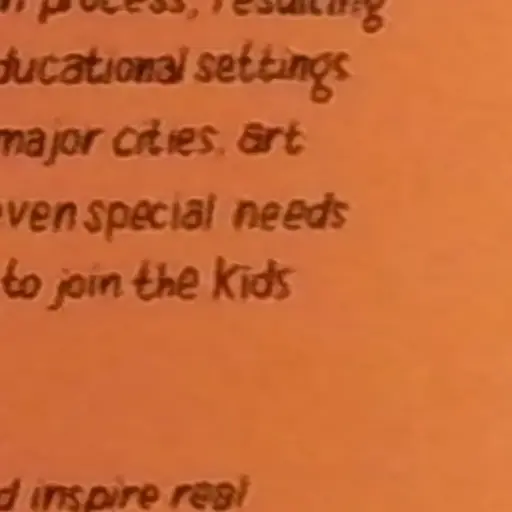 process, resulting
ducational settings
major cities, art
ven special needs
to join the kids
d inspire real